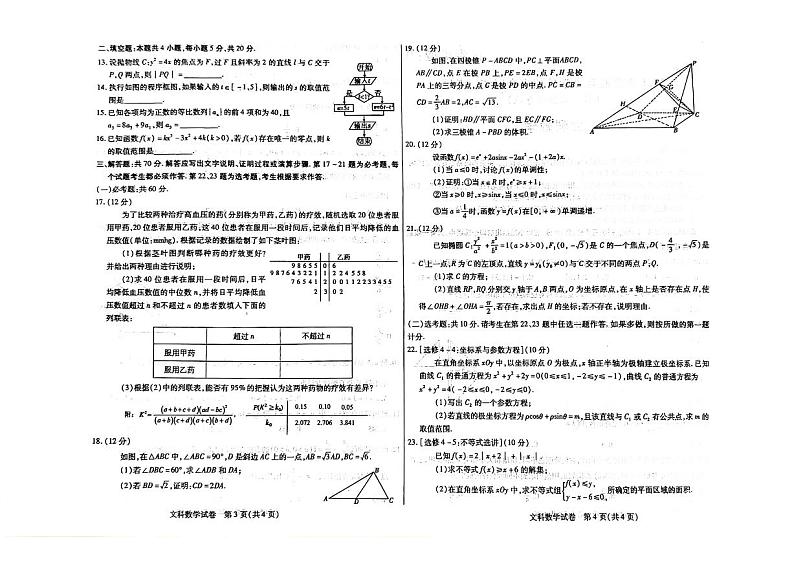 二、填空题:本题共4小题,每小题5分,共20分.
13.设抛物线C:y²=4x的焦点为F,过F且斜率为2的直线l与C交于
P,Q两点,则|PQ|=
14.执行如图的程序框图,如果输入的t∈[-1,5],则输出的s的取值范
围是
15.已知各项均为正数的等比数列{aₙ}的前4项和为40,且
,则a₃=
16.已知函数f(x)=kx³-3x²+4k(k>0),若f(x)存在唯一的零点,则k
的取值范围是
开始
输入t
是
否
输出s
结束
三、解答题:共70分.解答应写出文字说明、证明过程或演算步骤.第17~21题为必考题,每
个试题考生都必须作答.第22、23题为选考题,考生根据要求作答.
(一)必考题:共60分.
17.(12分)
为了比较两种治疗高血压的药(分别称为甲药,乙药)的疗效,随机选取20位患者服
用甲药,20位患者服用乙药,这40位患者在服用一段时间后,记录他们日平均降低的血
压数值(单位:mmhg).根据记录的数据绘制了如下茎叶图:
(1)根据茎叶图判断哪种药的疗效更好?
并给出两种理由进行说明;
(2)求40位患者在服用一段时间后,日平
均降低血压数值的中位数n,并将日平均降低血
压数值超过n和不超过n的患者数填入下面的
列联表:
甲药 乙药
9 8 6 5 5 0 6
9 8 7 6 4 3 2 2 1 1 2 2 4 5 5 8
7 6 5 4 1 2 0 0 1 1 2 2 3 3 4 5 5
2 3 0 2
超过n 不超过n
服用甲药
服用乙药
(3)根据(2)中的列联表,能否有95%的把握认为这两种药物的疗效有差异?
附:K²=(a+b+c+d)(ad-bc)²/(a+b)(c+d)(a+c)(b+d),
P(K²≥k₀) 0.15 0.10 0.05
k₀ 2.072 2.706 3.841
18.(12分)
如图,在△ABC中,∠ABC=90°,D是斜边AC上的一点,AB=√3AD,BC=√6.
(1)若∠DBC=60°,求∠ADB和DA;
(2)若BD=√2,证明:CD=2DA.
A D C B
文科数学试卷 第3页(共4页)
19.(12分)
如图,在四棱锥P-ABCD中,PC⊥平面ABCD,
AB∥CD,点E在棱PB上,PE=2EB,点F,H是棱
PA上的三等分点,点G是棱PD的中点.PC=CB=
CD=AB=2,AC=√13.
(1)证明:HD∥平面CFG,且EC∥FG;
(2)求三棱锥A-PBD的体积.
P F G E H D C A B
20.(12分)
设函数f(x)=eˣ+2asinx-2ax²-(1+2a)x.
(1)当a≤0时,讨论f(x)的单调性;
(2)证明:①当x∈R时,eˣ≥x+1;
②当x≥0时,x≥sinx,当x≤0时,x≤sinx;
③当a=1/4时,函数y=f(x)在[0,+∞)单调递增.
21.(12分)
已知椭圆C:y²/a²+x²/b²=1(a>b>0),F₁(0,-√5)是C的一个焦点,D(-4/3,-√5)是
C上一点,R为C的左顶点,直线y=y₀(y₀≠0)与C交于不同的两点P,Q.
(1)求C的方程;
(2)直线RP,RQ分别交y轴于A,B两点,O为坐标原点,在x轴上是否存在点H,使
得∠OHB+∠OHA=π/2.若存在,求出点H的坐标;若不存在,说明理由.
(二)选考题:共10分.请考生在第22、23题中任选一题作答.如果多做,则按所做的第一题
计分.
22.[选修4-4:坐标系与参数方程](10分)
在直角坐标系xOy中,以坐标原点O为极点,x轴正半轴为极轴建立极坐标系.已知
曲线C₁的普通方程为x²+y²+2y=0(0≤x≤1,-2≤y≤-1),曲线C₂的普通方程为
x²+y²=4(-2≤x≤0,-2≤y≤0)
(1)写出C₂的一个参数方程;
(2)若直线的极坐标方程为ρcosθ+ρsinθ=m,且该直线与C₁或C₂有公共点,求m的
取值范围.
23.[选修4-5:不等式选讲](10分)
已知f(x)=2|x+2|+|x|
(1)求不等式f(x)≥x+6的解集;
(2)在直角坐标系xOy中,求不等式组{f(x)≤y, y-x-6≤0,所确定的平面区域的面积.
文科数学试卷 第4页(共4页)